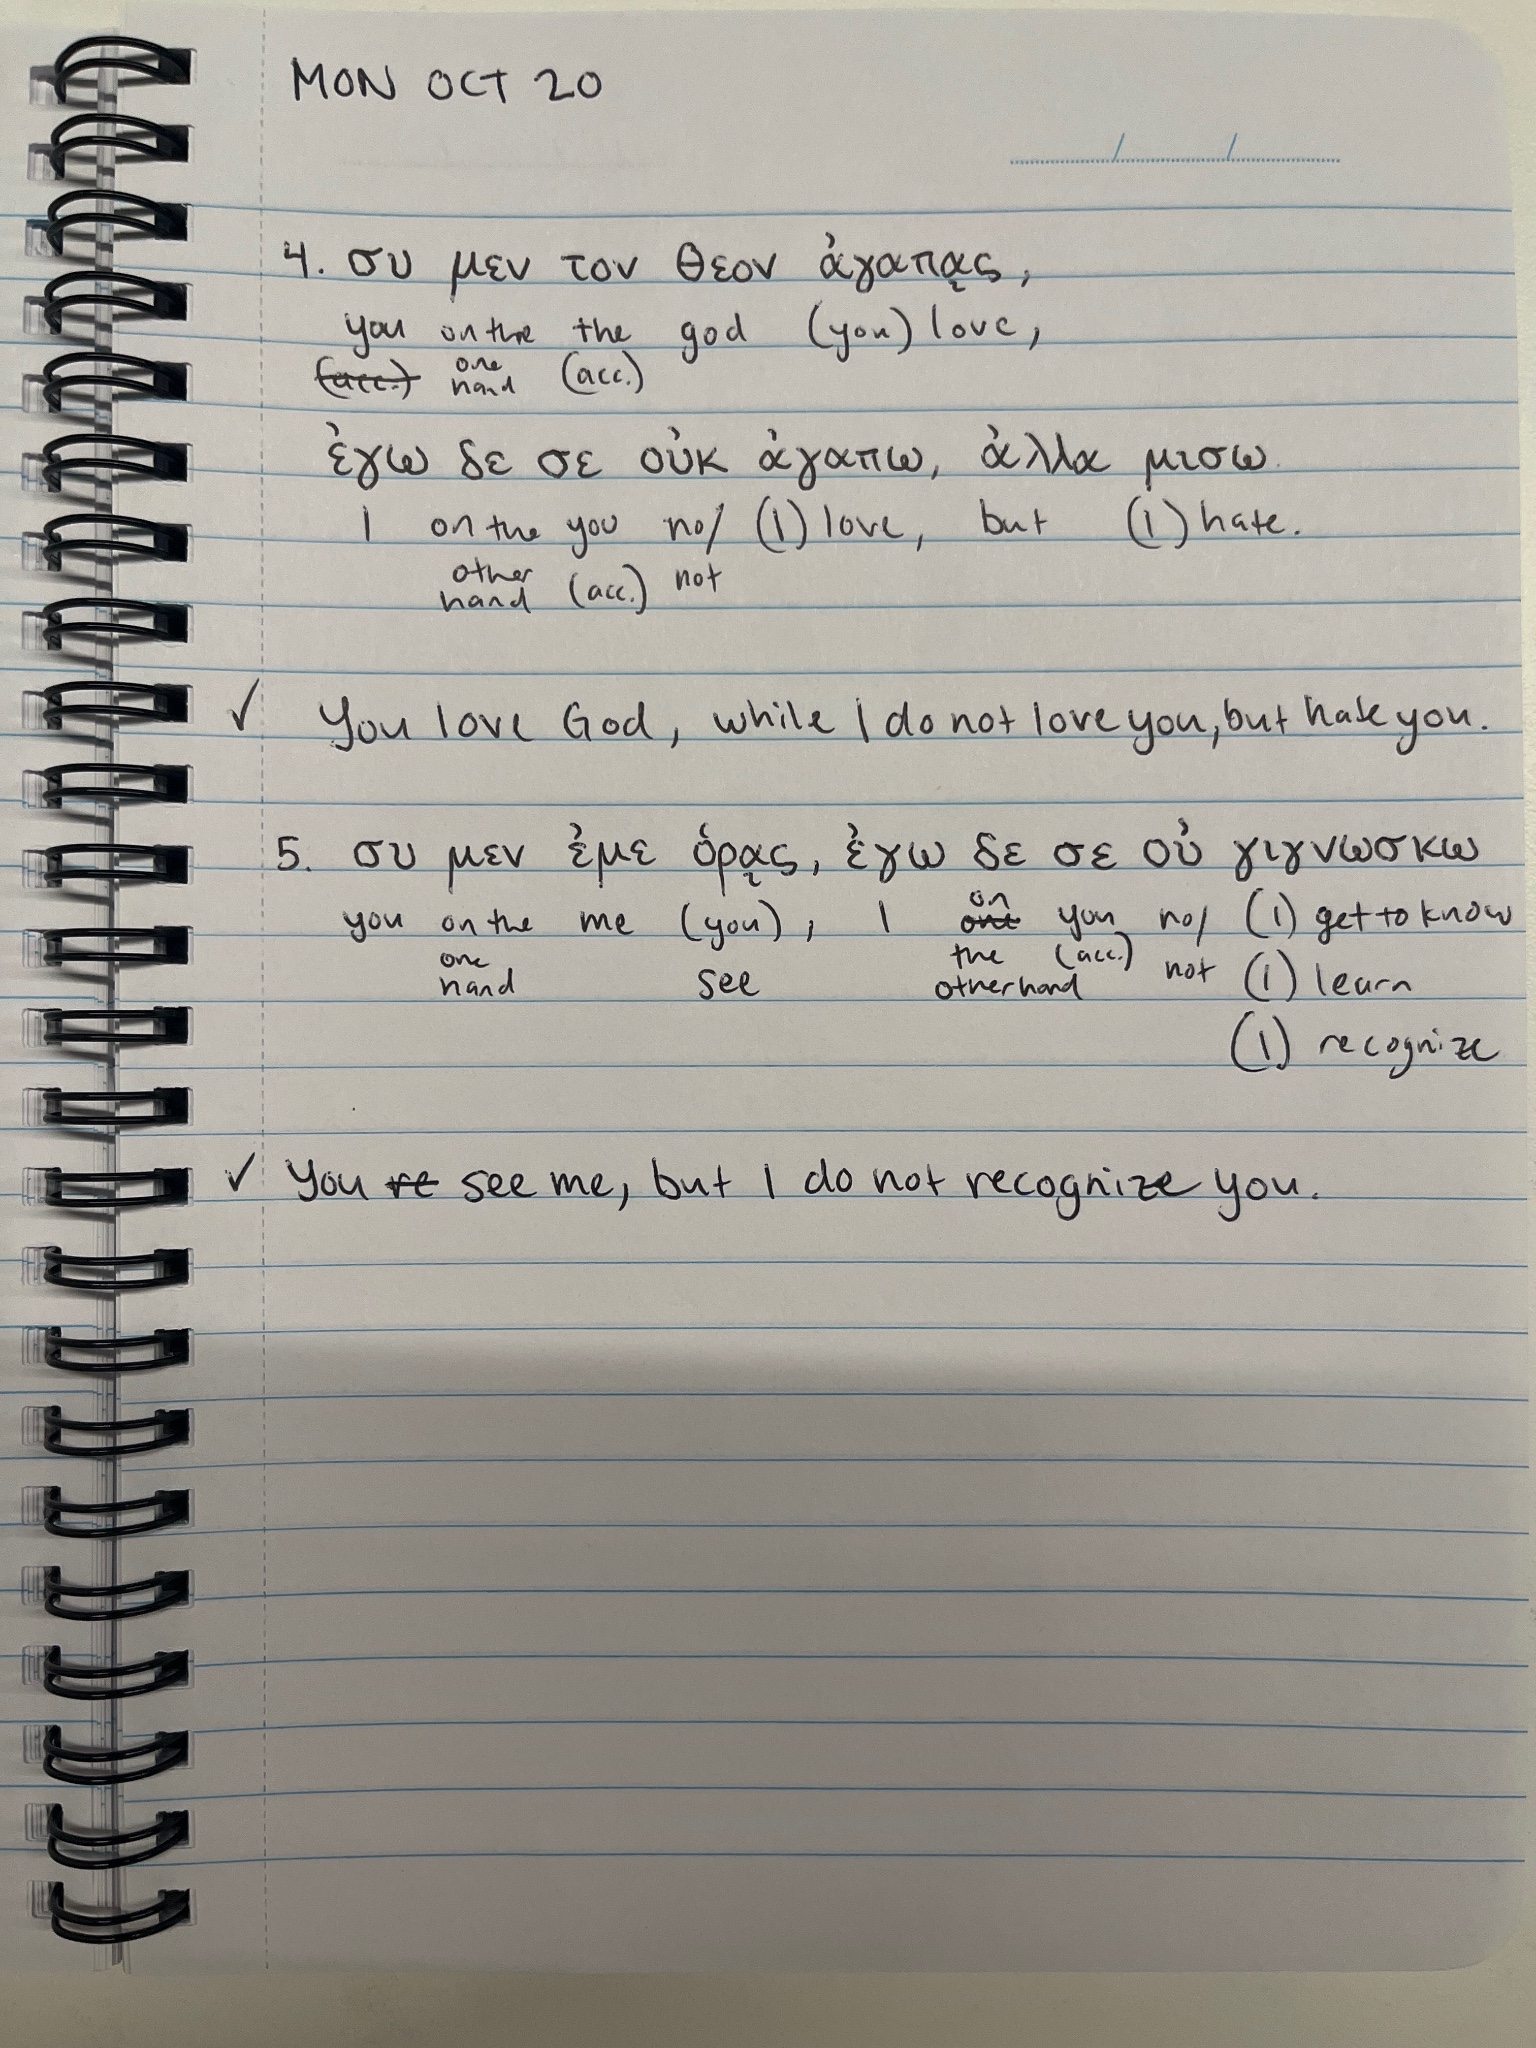 MON OCT 20
4. συ μεν τον θεον ἀγαπᾳς,
you on the the god (you) love,
(acc.) one hand (acc.)
ἐγω δε σε οὐκ ἀγαπω, ἀλλα μισω.
I on the you no/ (I) love, but (I) hate.
other hand (acc.) not
✓ You love God, while I do not love you, but hate you.
5. συ μεν ἐμε ὁρᾳς, ἐγω δε σε οὐ γιγνωσκω
you on the me (you), I one on you no/ (I) get to know
one hand see the other hand (acc.) not (I) learn
(I) recognize
✓ You re see me, but I do not recognize you.